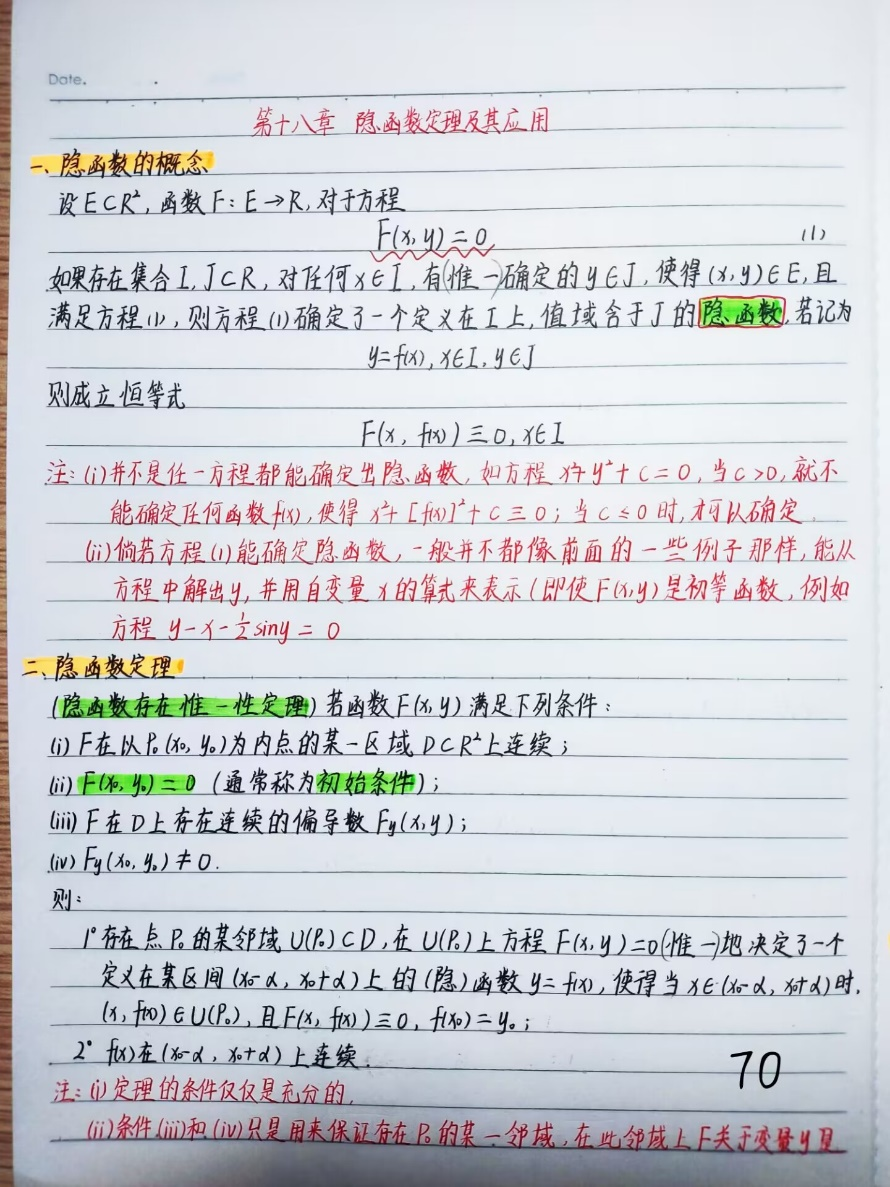 Date.
第十八章 隐函数定理及其应用
一、隐函数的概念
设E⊂R², 函数F: E→R, 对于方程
F(x, y) = 0 (1)
如果存在集合I, J⊂R, 对任何x∈I, 有(惟一)确定的y∈J, 使得(x, y)∈E, 且
满足方程(1), 则方程(1)确定了一个定义在I上, 值域含于J的隐函数, 若记为
y=f(x), x∈I, y∈J
则成立恒等式
F(x, f(x)) ≡ 0, x∈I
注: (i)并不是任一方程都能确定出隐函数, 如方程x²+y²+c=0, 当c>0, 就不
能确定任何函数f(x), 使得x²+[f(x)]²+c≡0; 当c≤0时, 才可以确定.
(ii)倘若方程(1)能确定隐函数, 一般并不都像前面的一些例子那样, 能从
方程中解出y, 并用自变量x的算式来表示(即使F(x,y)是初等函数, 例如
方程 y-x-½siny = 0
二、隐函数定理
(隐函数存在惟一性定理) 若函数F(x, y)满足下列条件:
(i) F在以P₀(x₀, y₀)为内点的某一区域D⊂R²上连续;
(ii) F(x₀, y₀)=0 (通常称为初始条件);
(iii) F在D上存在连续的偏导数Fy(x,y);
(iv) Fy(x₀, y₀)≠0.
则:
1°存在点P₀的某邻域U(P₀)⊂D, 在U(P₀)上方程F(x,y)=0(惟一)地决定了一个
定义在某区间(x₀-α, x₀+α)上的(隐)函数y=f(x), 使得当x∈(x₀-α, x₀+α)时,
(x, f(x))∈U(P₀), 且F(x, f(x))≡0, f(x₀)=y₀;
2° f(x)在(x₀-α, x₀+α)上连续.
70
注: (i)定理的条件仅仅是充分的.
(ii)条件(iii)和(iv)只是用来保证存在P₀的某一邻域, 在此邻域上F关于变量y是